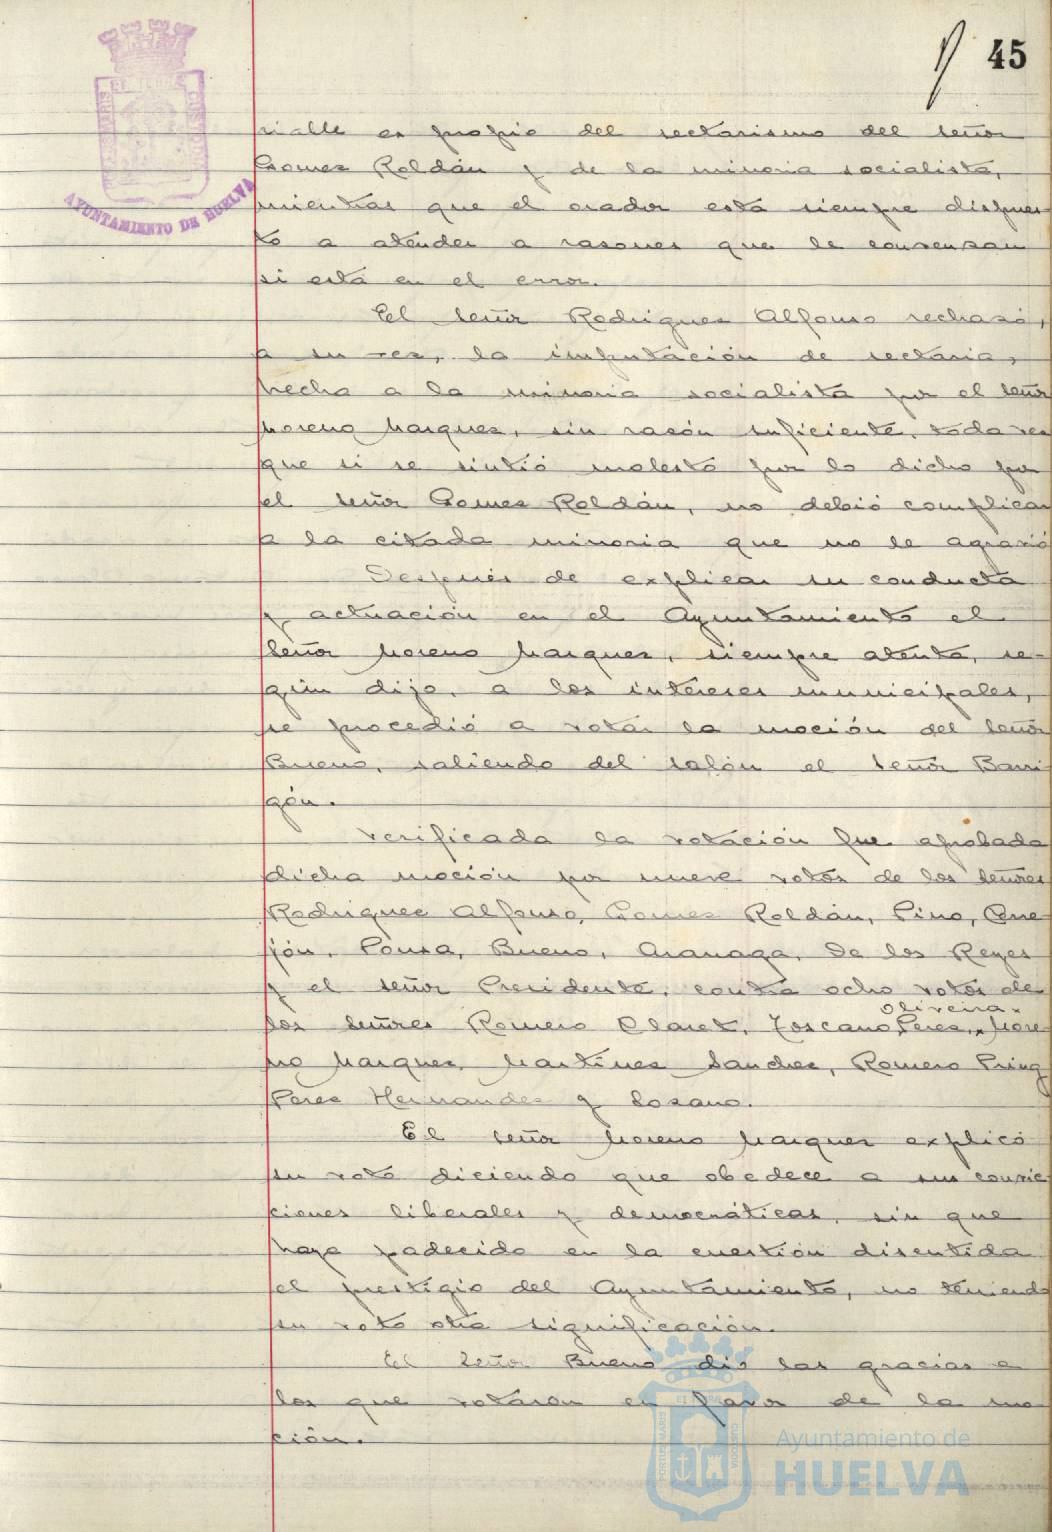 45
rialle es propio del sectarismo del señor
Gomez Roldán y de la minoria socialista,
mientras que el orador está siempre dispues
to a atender a razones que le convenzan
si está en el error.
El señor Rodriguez Alfonso rechazó,
a su vez, la imputación de sectaria,
hecha a la minoria socialista por el señor
Moreno Marquez, sin razón suficiente, toda vez
que si se sintió molesto por lo dicho por
el señor Gomez Roldán, no debió complicar
a la citada minoria que no le agravió
Después de explicar su conducta
y actuación en el Ayuntamiento el
señor Moreno Marquez, siempre atento, se-
gún dijo, a los intereses municipales,
se procedió a votar la moción del señor
Bueno, saliendo del salón el señor Barri
gón.
Verificada la votación fue aprobada
dicha moción por nueve votos de los señores
Rodriguez Alfonso, Gomez Roldán, Pino, Que
jón, Ponza, Bueno, Aranaga, De los Reyes
y el señor Presidente, contra ocho votos de
Oliveira,
los señores Romero Claret, Toscano Perez, More
no Marquez, Martinez Sanchez, Romero Pring
Perez Hernandez y Lozano.
El señor Moreno Marquez explicó
su voto diciendo que obedece a sus convic
ciones liberales y democráticas, sin que
haya padecido en la cuestión discutida
el prestigio del Ayuntamiento, no teniendo
su voto otra significación.
El señor Bueno dió las gracias a
los que votaron en favor de la mo
ción.
AYUNTAMIENTO DE HUELVA
Ayuntamiento de
HUELVA